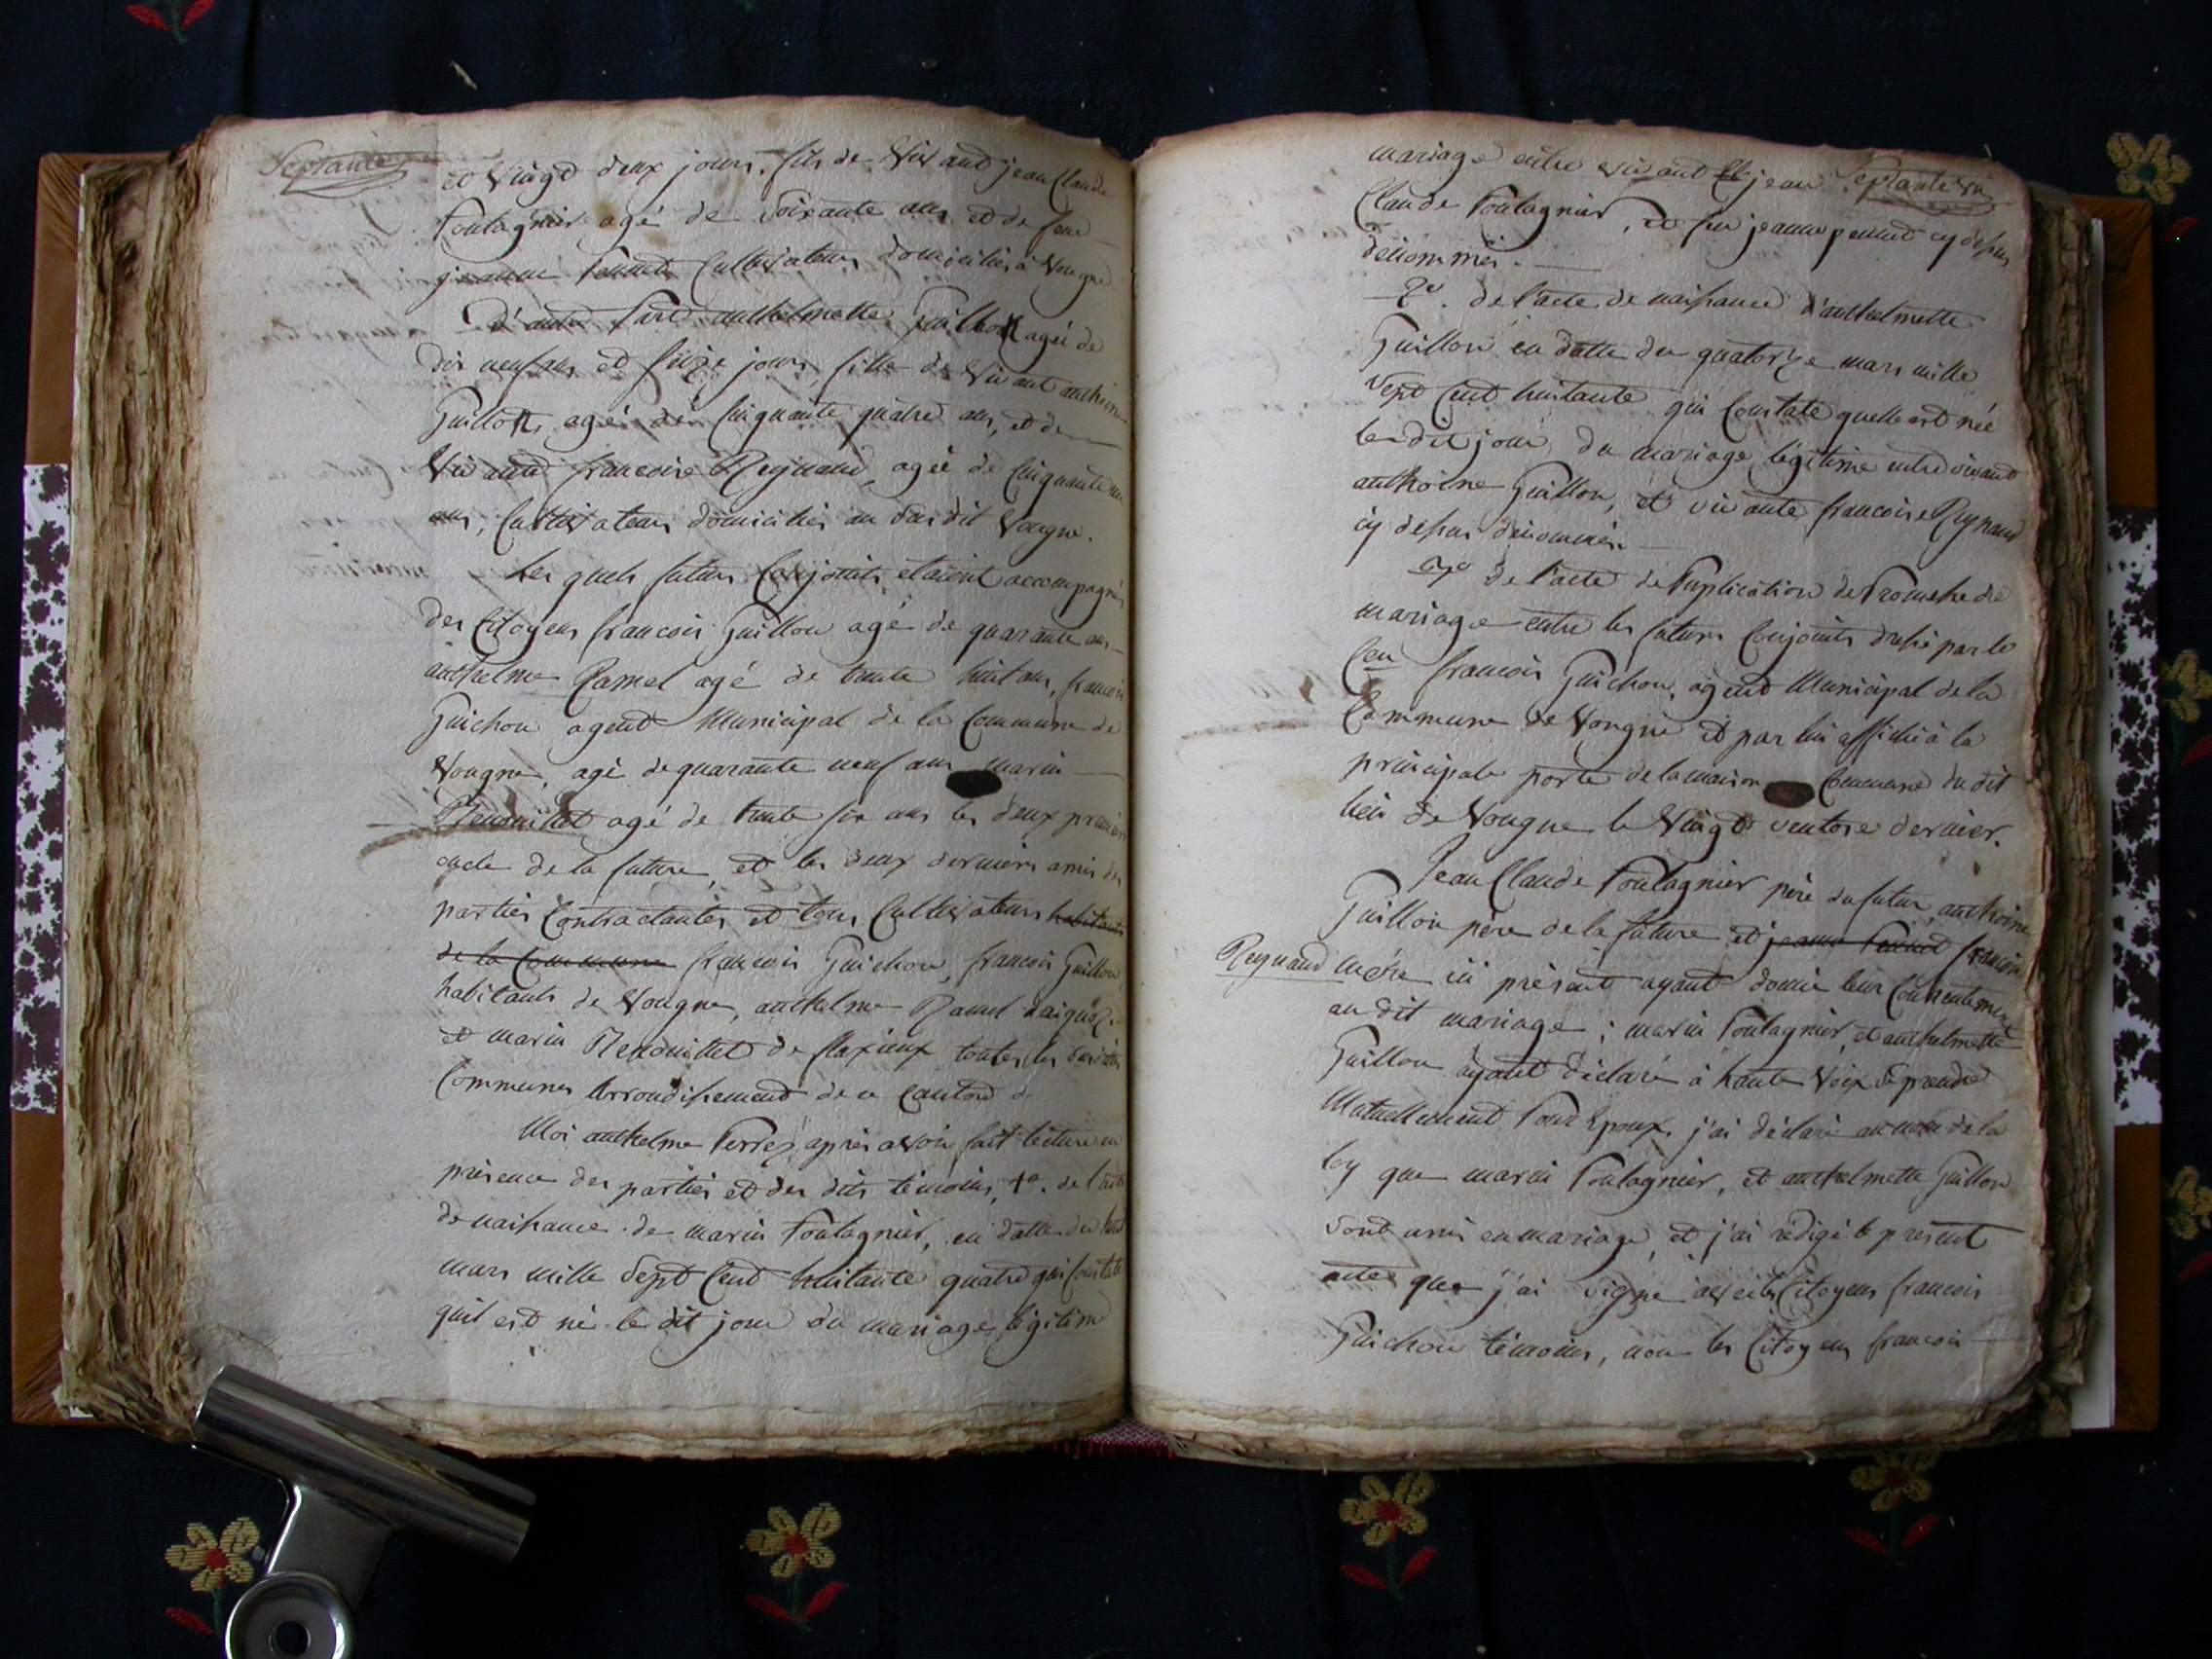 Septante
et Vingt deux jours, fils de Vivant jean Claude
Foulagnier agé de Soixante ans et de feue
jeanne Pennet Cultivateurs domiciliés à Vongne
D'autre Part anthelmette Guillon agée de
Dix neuf ans et seize jours, fille de Vivant anthoine
Guillon, agé de Cinquante quatre ans, et de
Vivante francoise Reynaud, agée de Cinquante un
ans, Cultivateurs domiciliés au susdit Vongne.
Les quels futurs Conjoints etaient accompagnés
Des Citoyens francois Guillon agé de quarante ans
anthelme Ramel agé de trente huit ans, francois
Guichon agent Municipal de la Commune de
Vongne, agé de quarante neuf ans marin
Renouillet agé de trente six ans les deux premiers
oncle de la future, et les deux derniers amis des
parties Contractantes et tous Cultivateurs habitants
de la Commune francois Guichon, francois Guillon
habitants de Vongne, anthelme Ramel
et marin Renouillet de flaxieux toutes les susdites
Communes Arrondissement de ce Canton
Moi anthelme Perret, après avoir fait lecture en
présence des parties et des dits témoins, 1o. de l'acte
de naissance de marin Foulagnier, en datte du huit
mars mille Sept Cent huitante quatre qui Constate
quil est né le dit jour du mariage légitime
mariage entre vivant et jean Septante un
Claude Foulagnier, et feu jeanne pennet cy dessus
dénommés.
2o. de l'acte de naissance d'anthelmette
Guillon en datte du quatorze mars mille
Sept Cent huitante qui Constate quelle est née
le dit jour, du mariage légitime entre vivant
anthoine Guillon, et vivante francoise Reynaud
cy dessus dénommés
3o de l'acte de Puplication de Promesse de
mariage entre les futurs Conjoints dressé par le
Cen francois Guichon, agent Municipal de la
Commune de Vongne et par lui affiché à la
principale porte de la maison Commune du dit
lieu de Vongne le Vingt ventose dernier.
Jean Claude Foulagnier père du futur, anthoine
Guillon père de la future et jeanne Pennet francoise
Reynaud mère ici présent ayant donné leur Consentement
au dit mariage ; marin Foulagnier, et anthelmette
Guillon ayant déclaré à haute Voix se prendre
Mutuellement Pour Epoux, j'ai déclaré au nom de la
loy que marin Foulagnier, et anthelmette Guillon
sont unis en mariage, et j'ai rédigé le présent
acte que j'ai signé avec les Citoyens francois
Guichon témoins, non les Citoyens francois